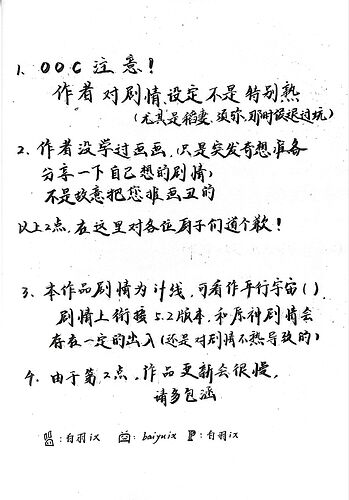 1、OOC注意!
作者对剧情、设定不是特别熟
(尤其是稻妻、须弥,那时候退过坑)
2、作者没学过画画,只是突发奇想准备
分享一下自己想的剧情)
不是故意把您推画丑的
以上2点,在这里对各位厨子们道个歉!
3、本作品剧情为if线,可看作平行宇宙( ),
剧情上衔接5.2版本,和原神剧情会
存在一定的出入(还是对剧情不熟导致的)
4、由于第2点,作品更新会很慢,
请多包涵
:白羽ix :baiyuix :白羽ix